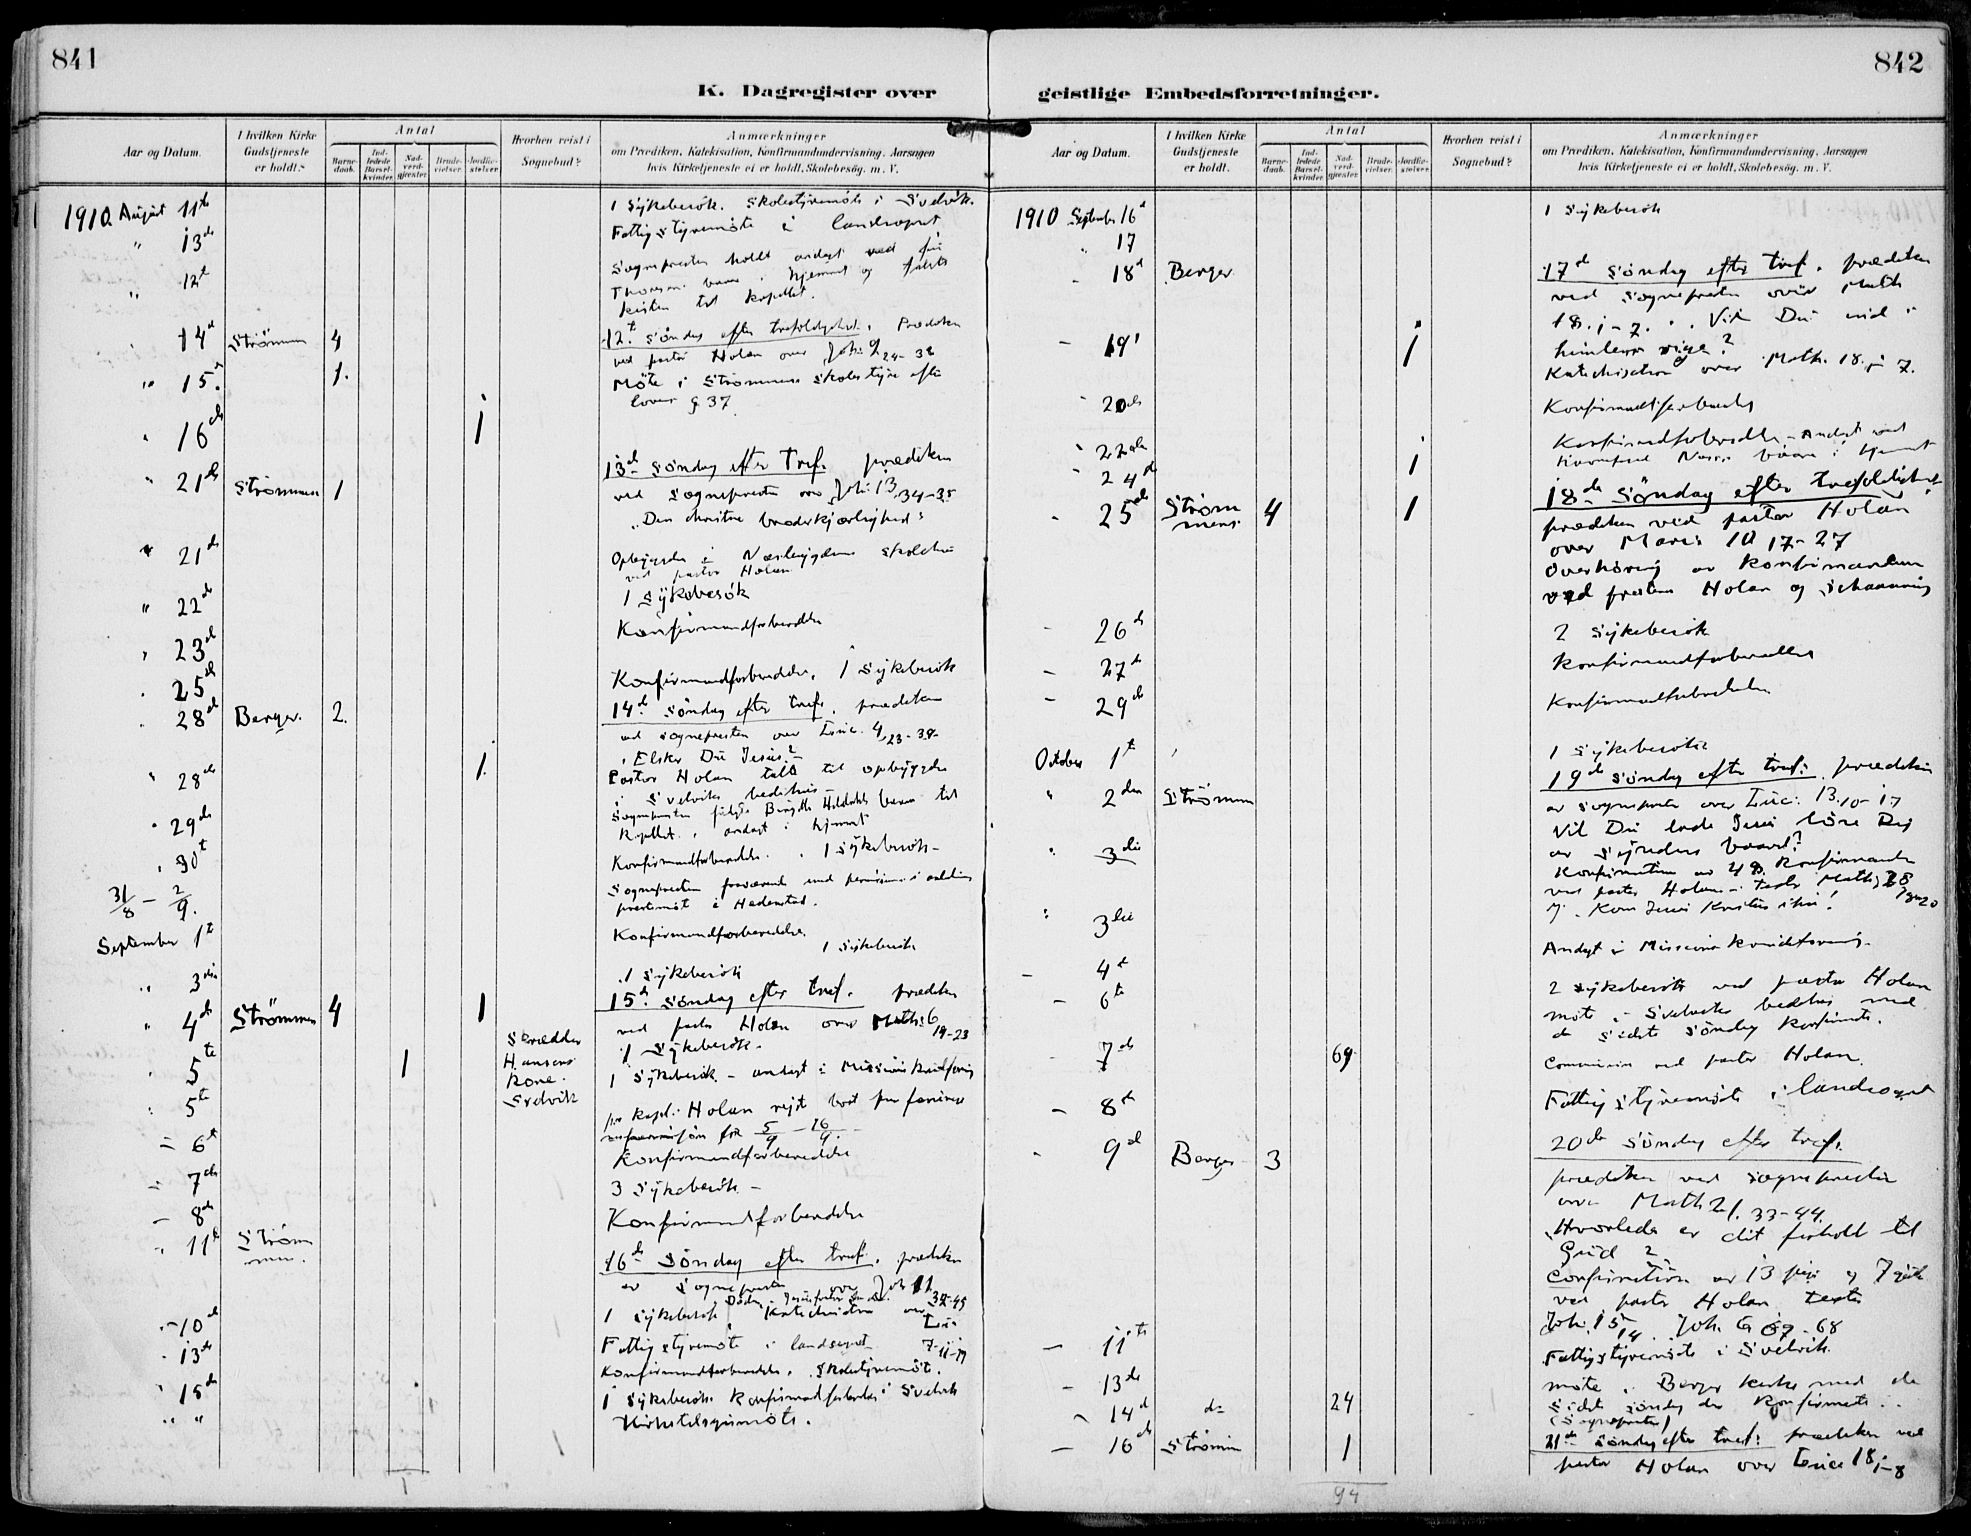 841
K. Dagregister over
Aar og Datum.
I hvilken Kirke
Gudstjeneste
er holdt.
Antal
Barne-
daab.
Ind-
ledede
Barsel-
kvinder.
Nad-
verd-
gjester.
Brude-
vielser.
Jordfæ-
stelser
Hvorhen reist i
Sognebud?
Anmærkninger
om Prædiken, Katekisation, Konfirmandundervisning, Aarsagen
hvis Kirketjeneste ei er holdt, Skolebesøg. m. V.
1910. August 11te 1 Sykebesök. Skolestyremöte i Svelvik.
" 13de Fattigstyremöte i landsognet
" 12t Sognepresten holdt andagt ved
Thoresens baare i hjemmet og fulgte
kisten til kapellet.
14d Strømm 4 12t Söndag efter trefoldighet. Prædiken
ved pastor Holan over Joh: 9 24-38
" 15. 1. Möte i Strömmens Skolestyre efter
loven § 37.
" 16de 1
" 21de Strömmen 1 13de Söndag efter Tref. prædiken
ved Sognepresten over Joh: 13 34-35
"Den christne broderkjærlighed"
" 21de Opbyggelse i Næsbygdens skolehus
ved pastor Holan
" 22de 1 Sykebesök
" 23de Konfirmandforberedelse
" 25de Konfirmandforberedelse. 1 Sykebesök
" 28de Berger. 2. 14de Söndag efter tref. prædiken
ved sognepresten over Luc. 4, 23-30
"Elsker Du Jesus?"
" 28de 1. Pastor Holan talte til opbyggelse
i Svelviks bedehus
" 29de Sognepresten fulgte baare til
Kapellet. andagt i hjemmet
" 30t Konfirmandforberedelse. 1 Sykebesök
31/8 - 2/9. Sognepresten fraværende med permission i anledning
prestemöt i Hedenstad.
September 1t Konfirmandforberedelse.
1 Sykebesök
" 3die 1 Sykebesök
" 4de Strömmen 4 1 15de Söndag efter tref. prædiken
ved pastor Holan over Math: 6 19-23
" 5te 1 Skrædder
Hansens
kone.
Svelvik
1 Sykebesök
" 5te 1 Sykebesök. - andagt i Missions kvindforening
" 6t kapl: Holan rejst bort
for 5/9 - 26/9.
" 7de Konfirmandforberedelse
3 Sykebesök
" 8de Konfirmandforberedelse
" 11te Ström
men. 16de Söndag efter tref. prædiken
av Sognepresten over Joh 11 32-45
" 10de 1 Sykebesök Katechisation over Luc
7-11-17
" 13de Fattigstyremöte i landsognet
Konfirmandforberedelse. Skolestyremöt.
" 15de 1 Sykebesök. Konfirmandforberedelse i Svelvik
" " Kirketilsynsmöte.
1
842
geistlige Embedsforretninger.
Aar og Datum.
I hvilken Kirke
Gudstjeneste
er holdt.
Antal
Barne-
daab.
Ind-
ledede
Barsel-
kvinder.
Nad-
verd-
gjester.
Brude-
vielser.
Jordfæ-
stelser
Hvorhen reist i
Sognebud?
Anmærkninger
om Prædiken, Katekisation, Konfirmandundervisning, Aarsagen
hvis Kirketjeneste ei er holdt, Skolebesøg. m. V.
1910 September 16d 1 Sykebesök
" 17
18d Berger 17d Söndag efter tref. prædiken
ved Sognepresten over Math
18. 1-7. Vil Du ind i
himlens rige?
19 1 Katechisation over Math. 18. 1-7.
20de Konfirmandforberedelse
22de Konfirmandforberedelse - Andagt ved
baare i hjemmet
24de 1
25de Ström
mens. 4 1 18de Söndag efter trefoldighet
prædiken ved pastor Holan
over Marc: 10 17-27
Overhöring av konfirmanderne
ved presterne Holan og Schanning
26de 2 Sykebesök
27de Konfirmandforberedelse
29de Konfirmandforberedelse
October 1t 1 Sykebesök
" 2den Strömm 19de Söndag efter tref: prædiken
av Sognepresten over Luc: 13. 10-17
Vil Du lade Jesus löse Dig
av Syndens baand?
" 3die Konfirmation av 48 Konfirmander
ved pastor Holan - text: Math. 28 20
: 3die Andagt i Missions kvindforening
- 4de 2 sykebesök ved pastor Holan
- 6te möte i Svelviks bedehus med
de sidste Söndag konfirmerte.
7de 69 Communion ved pastor Holan.
- 8de Fattigstyremöte i landsognet
9de Berger 3 20de Söndag efter tref.
prædiken ved sognepresten
over Math 21. 33-44.
Hvorledes er dit forhold til
Gud?
Confirmation av 13 piger og 7 gutter
ved pastor Holan. texter
Joh. 15 14. Joh. 6 67-68
- 11te Fattigstyremöte i Svelvik
- 13de möte i Berger kirke med de
sidste söndag der konfirmerte.
(Sognepresten)
14d do 24
- 16de Strömm 1 21de Söndag efter tref: prædiken ved
pastor Holan over Luc 18, 1-8
94